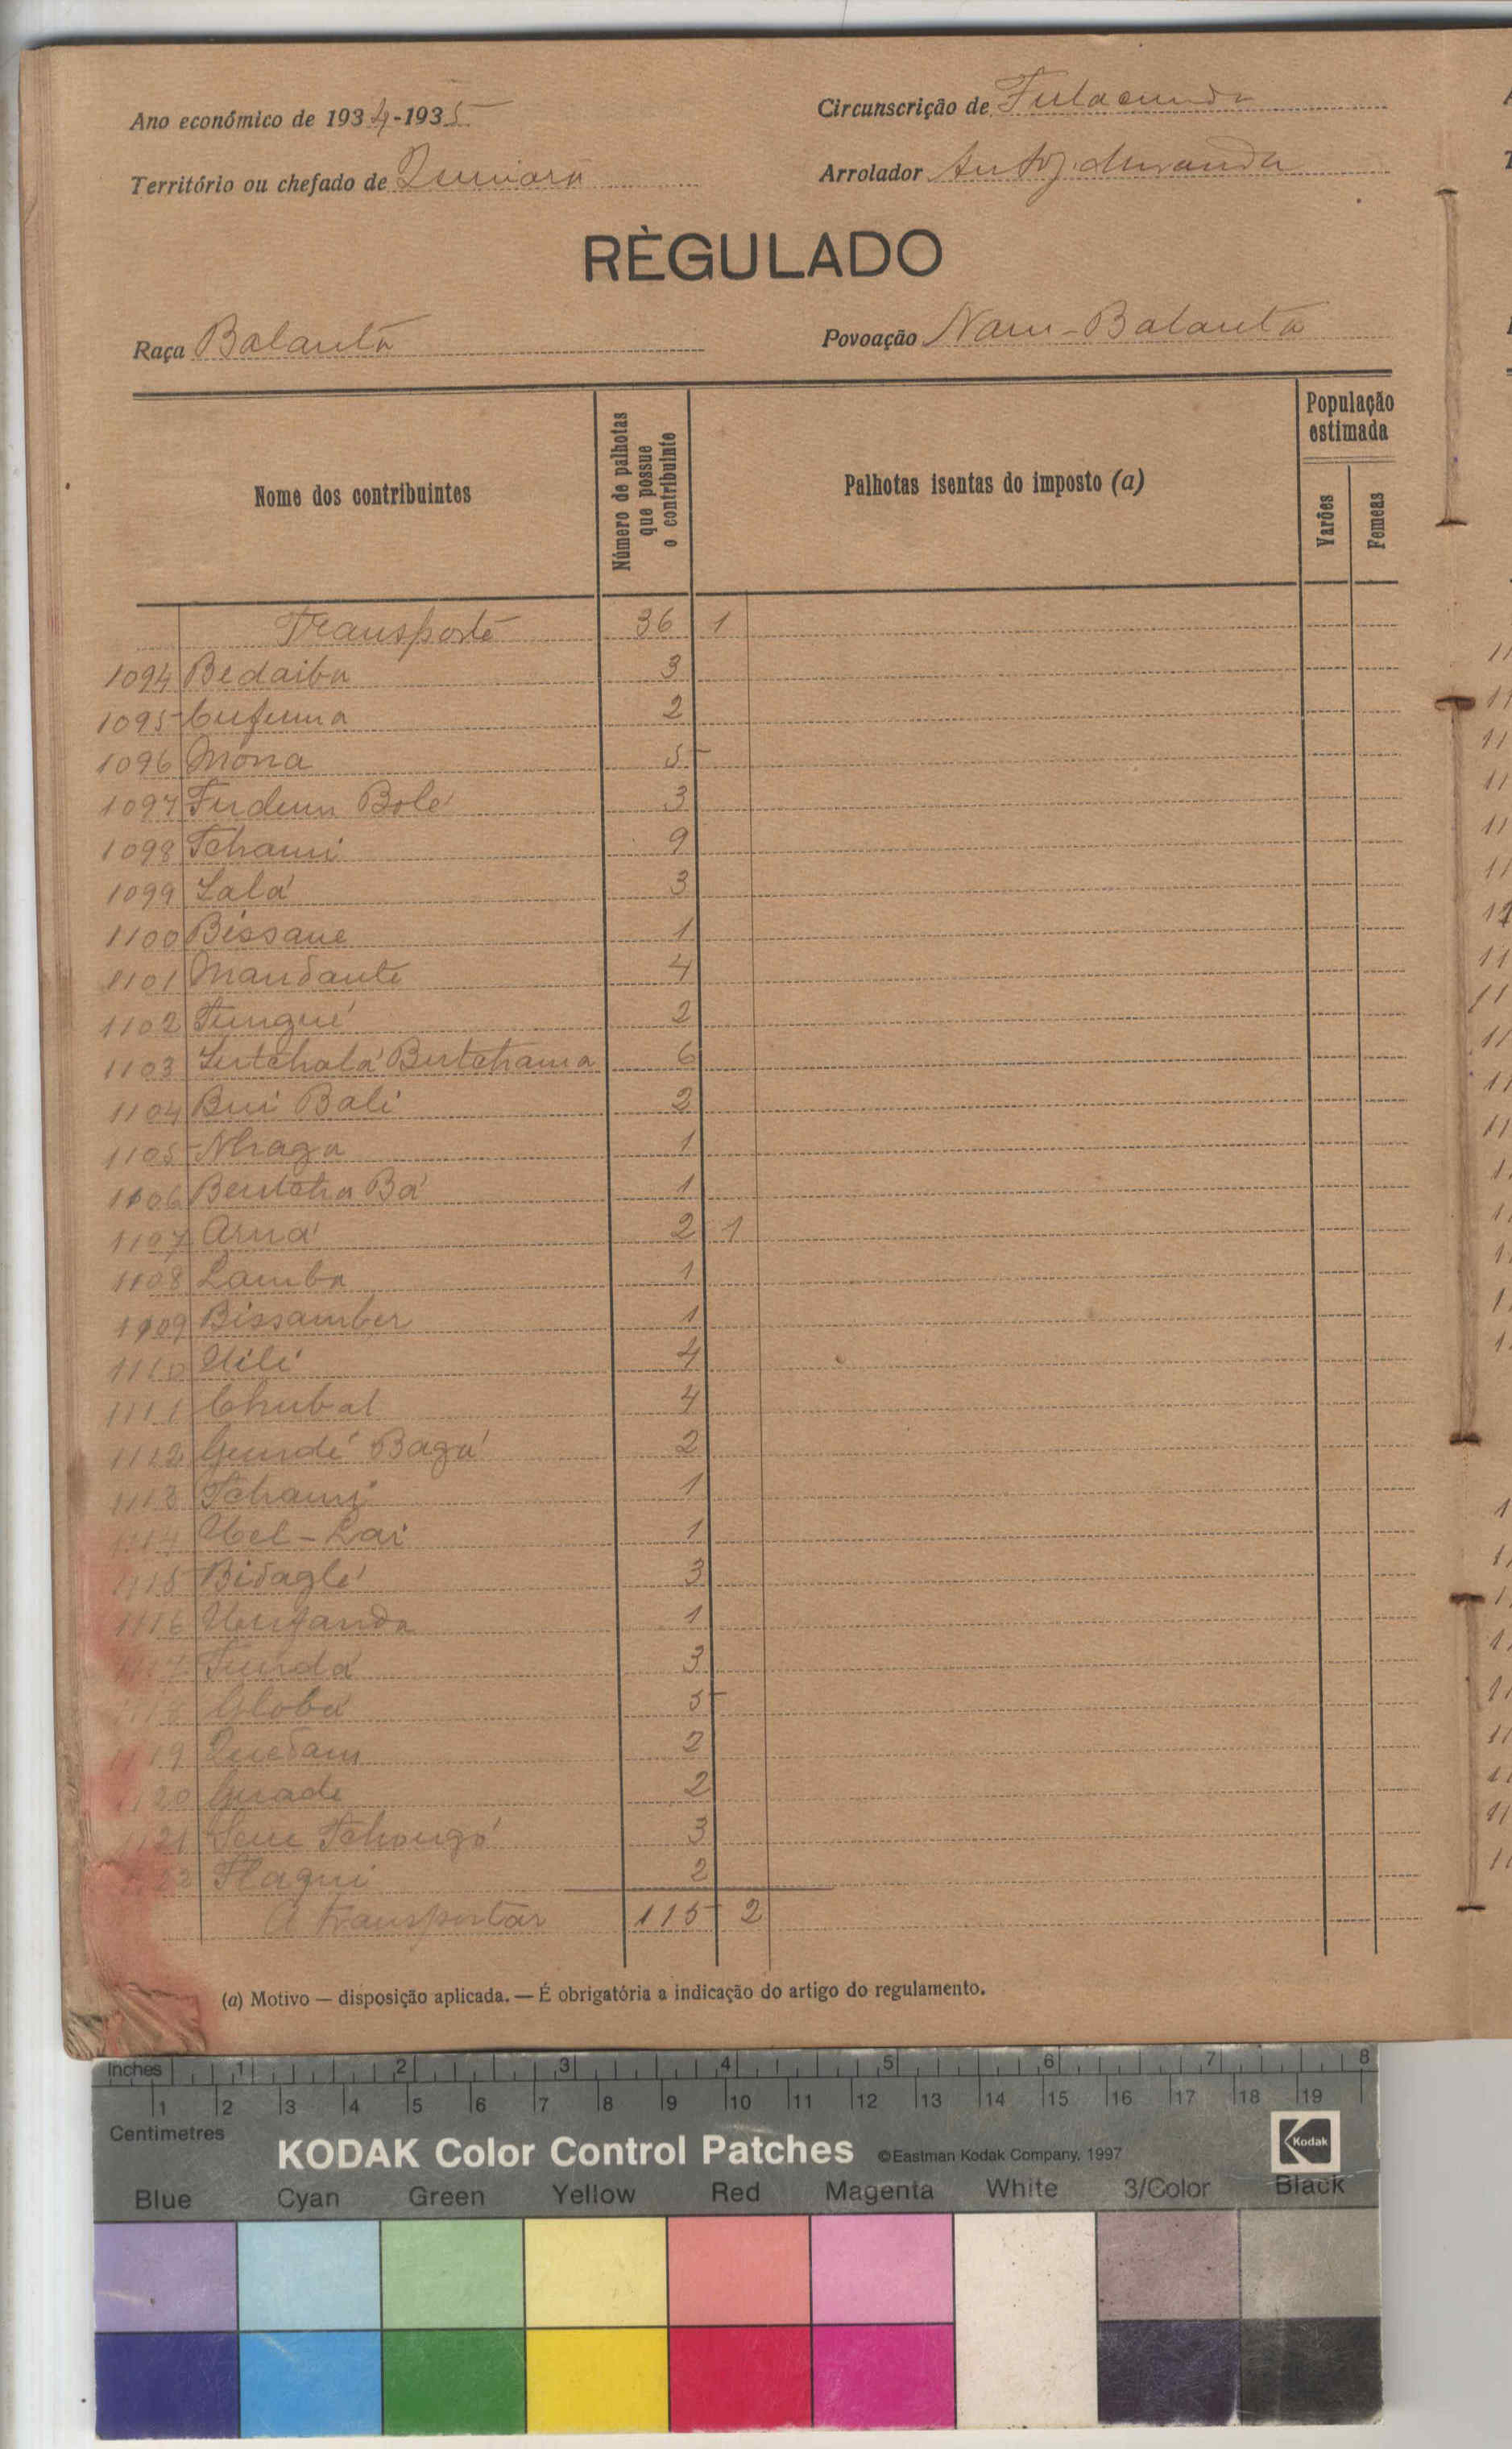 Ano económico de 1934-1935
Circunscrição de Fulacunda
Território ou chefado de Quinara
Arrolador
RÈGULADO
Raça Balanta
Povoação Nam-Balanta
Nome dos contribuintes
Número de palhotas que possue o contribuinte
Palhotas isentas do imposto (a)
População estimada
Varões
Femeas
Transporte 36 1
1094 Bedaiba 3
1095 Cufuma 2
1096 Móna 5
1097 Bolé 3
1098 Tchami 9
1099 Lalá 3
1100 Bissane 1
1101 Mandante 4
1102 Tungué 2
1103 6
1104 Bui Bali 2
1105 Nhaga 1
1106 Bentcha Bá 1
1107 Arná 2 1
1108 Lamba 1
1109 Bissamber 1
1110 4
1111 Chubal 4
1112 Gundé Bagá 2
1113 Tchami 1
1114 1
1115 Bidaglé 3
1116 1
1117 Tundá 3
1118 Globá 5
1119 Quedam 2
1120 Guade 2
1121 Tchongó 3
1122 Flaqui 2
A transportar 115 2
(a) Motivo — disposição aplicada. — É obrigatória a indicação do artigo do regulamento.
Inches 1 2 3 4 5 6 7 8
1 2 3 4 5 6 7 8 9 10 11 12 13 14 15 16 17 18 19
Centimetres
KODAK Color Control Patches ©Eastman Kodak Company, 1997
Kodak
Blue Cyan Green Yellow Red Magenta White 3/Color Black